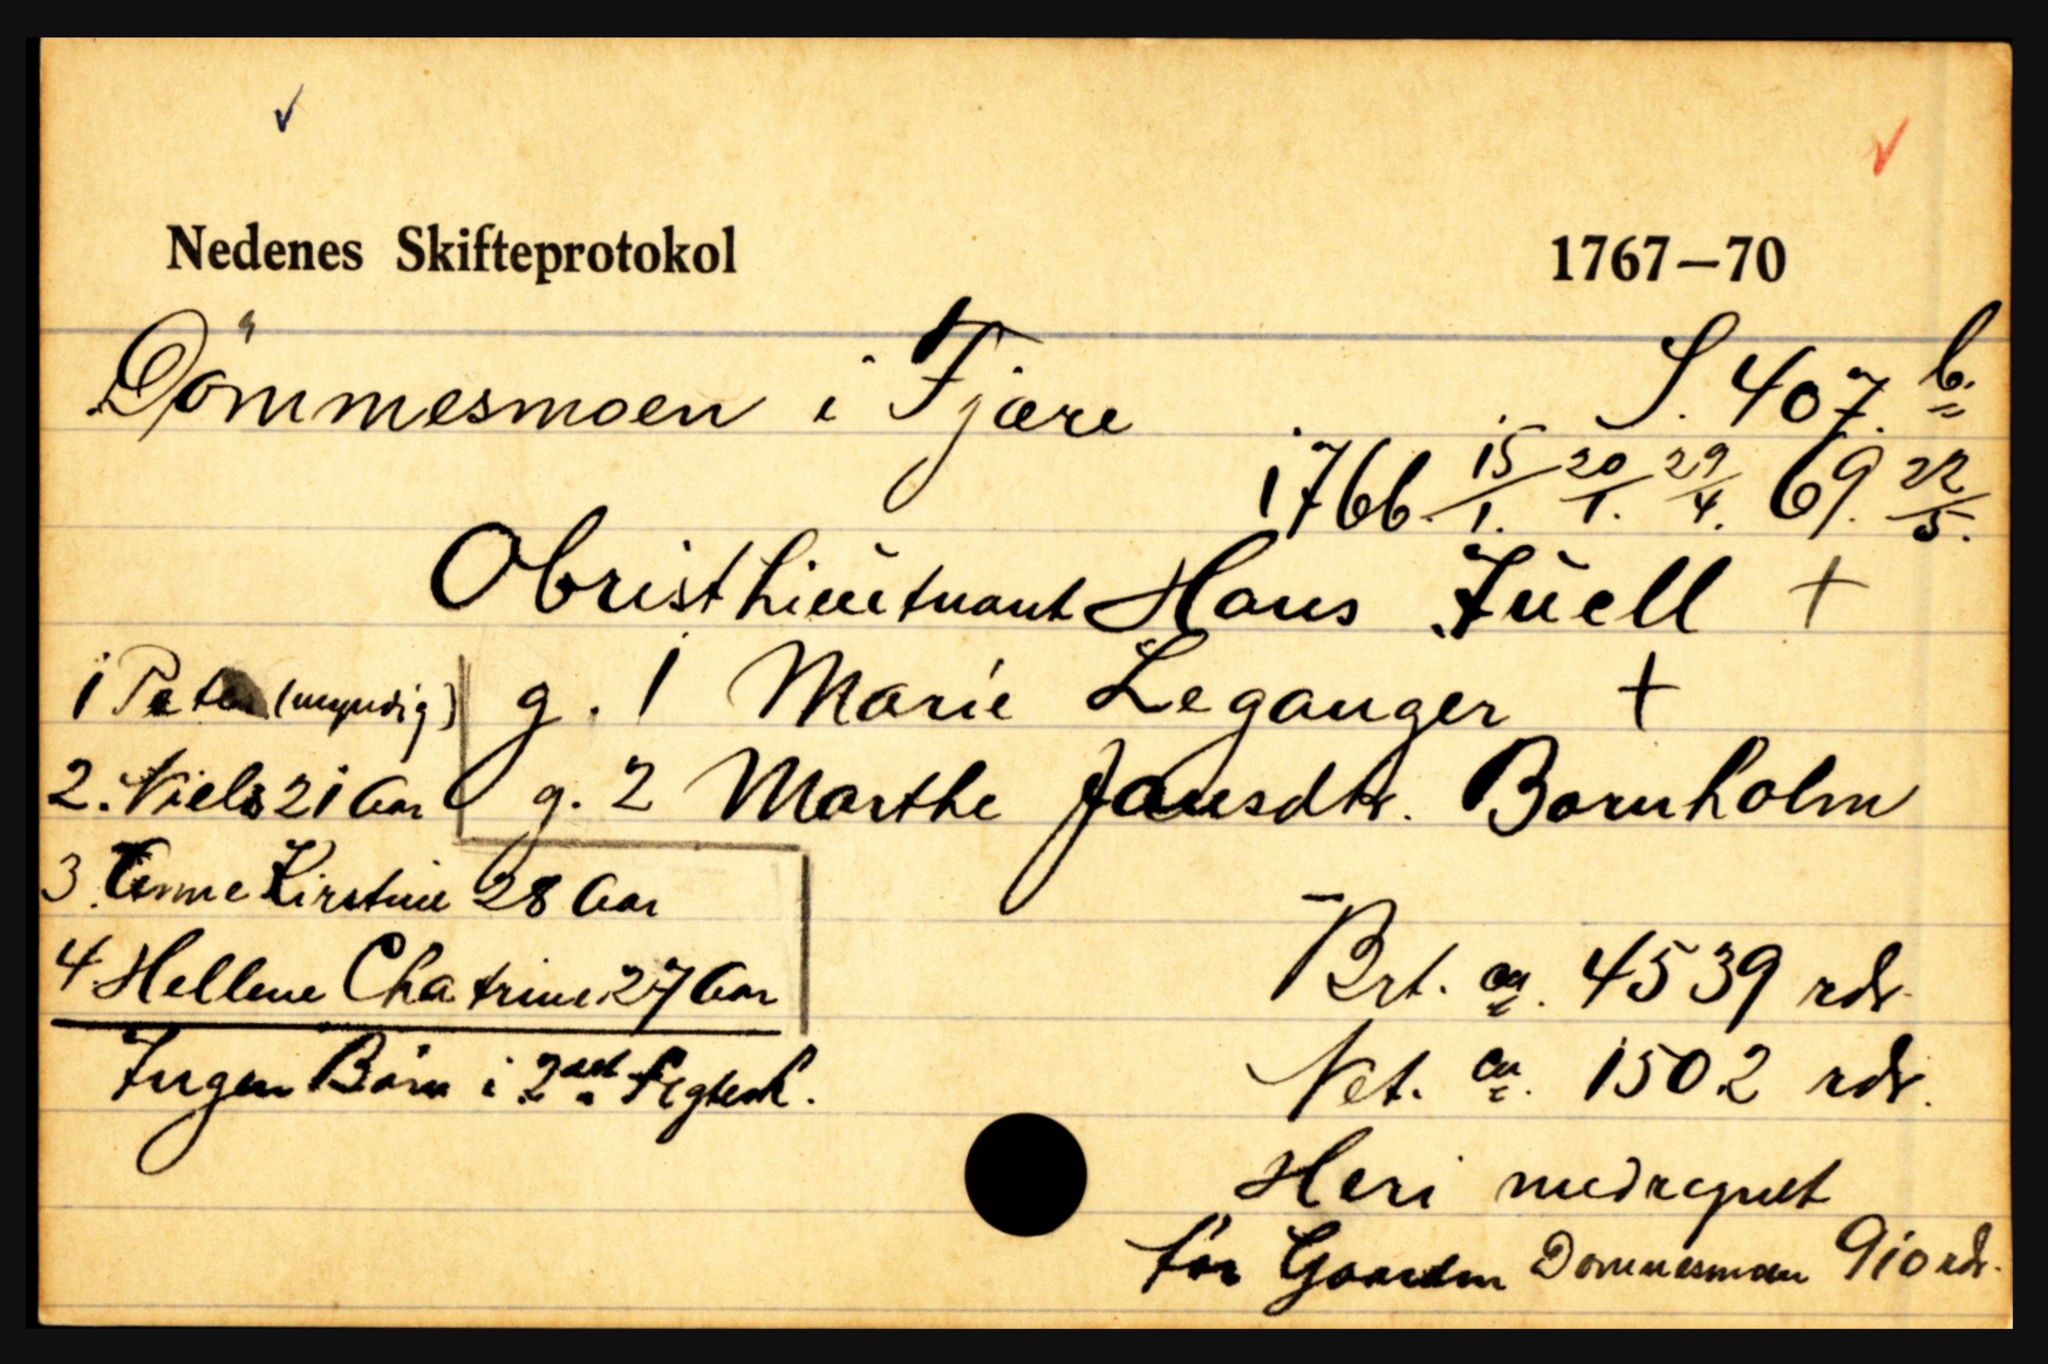 Nedenes Skifteprotokol 1767–70
Dömmesmoen i Fjære S. 407. b.
1766. 15/1. 20/1. 29/4. 69. 22/5.
Obristlieutnant Hans Juell +
1 Peter (myndig) g. 1 Marie Leganger +
2. Niels 21 Aar g. 2 Marthe Jansdtr. Bornholm
3. Anne Kirstine 28 Aar
4. Hellene Chatrine 27 Aar
Ingen Börn i 2det Ægtesk.
Brt. ca. 4539 rdr.
Net. ca. 1502 rdr.
Heri medregnet
för Gaarden Dömmesmoen 910 rdr.